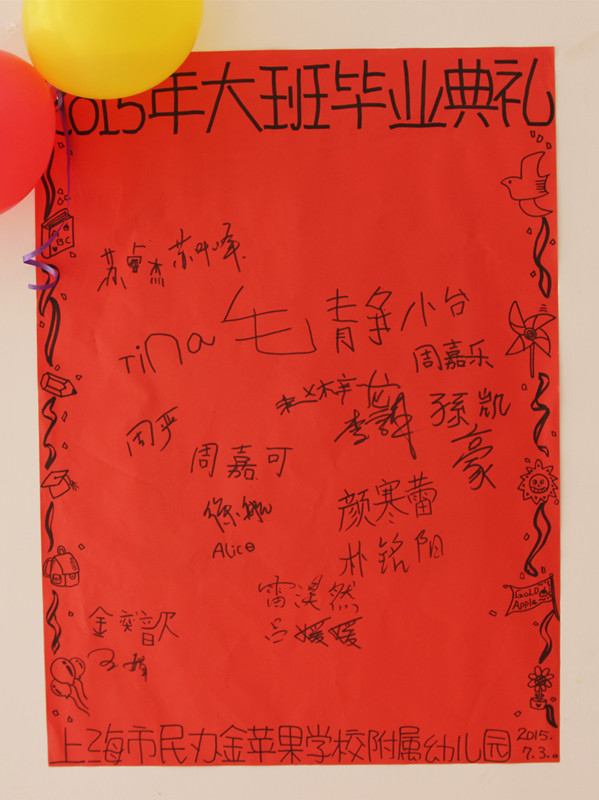 2015年大班毕业典礼
苏卓杰 苏叶峰
Tina 毛静 小台
周嘉乐
赵梓龙
李
孫凯豪
周严
周嘉可
Alice
颜寒蕾
朴铭阳
雷淏然
吕媛媛
金奕歆
GOLD
Apple
上海市民办金苹果学校附属幼儿园 2015.
7.3.